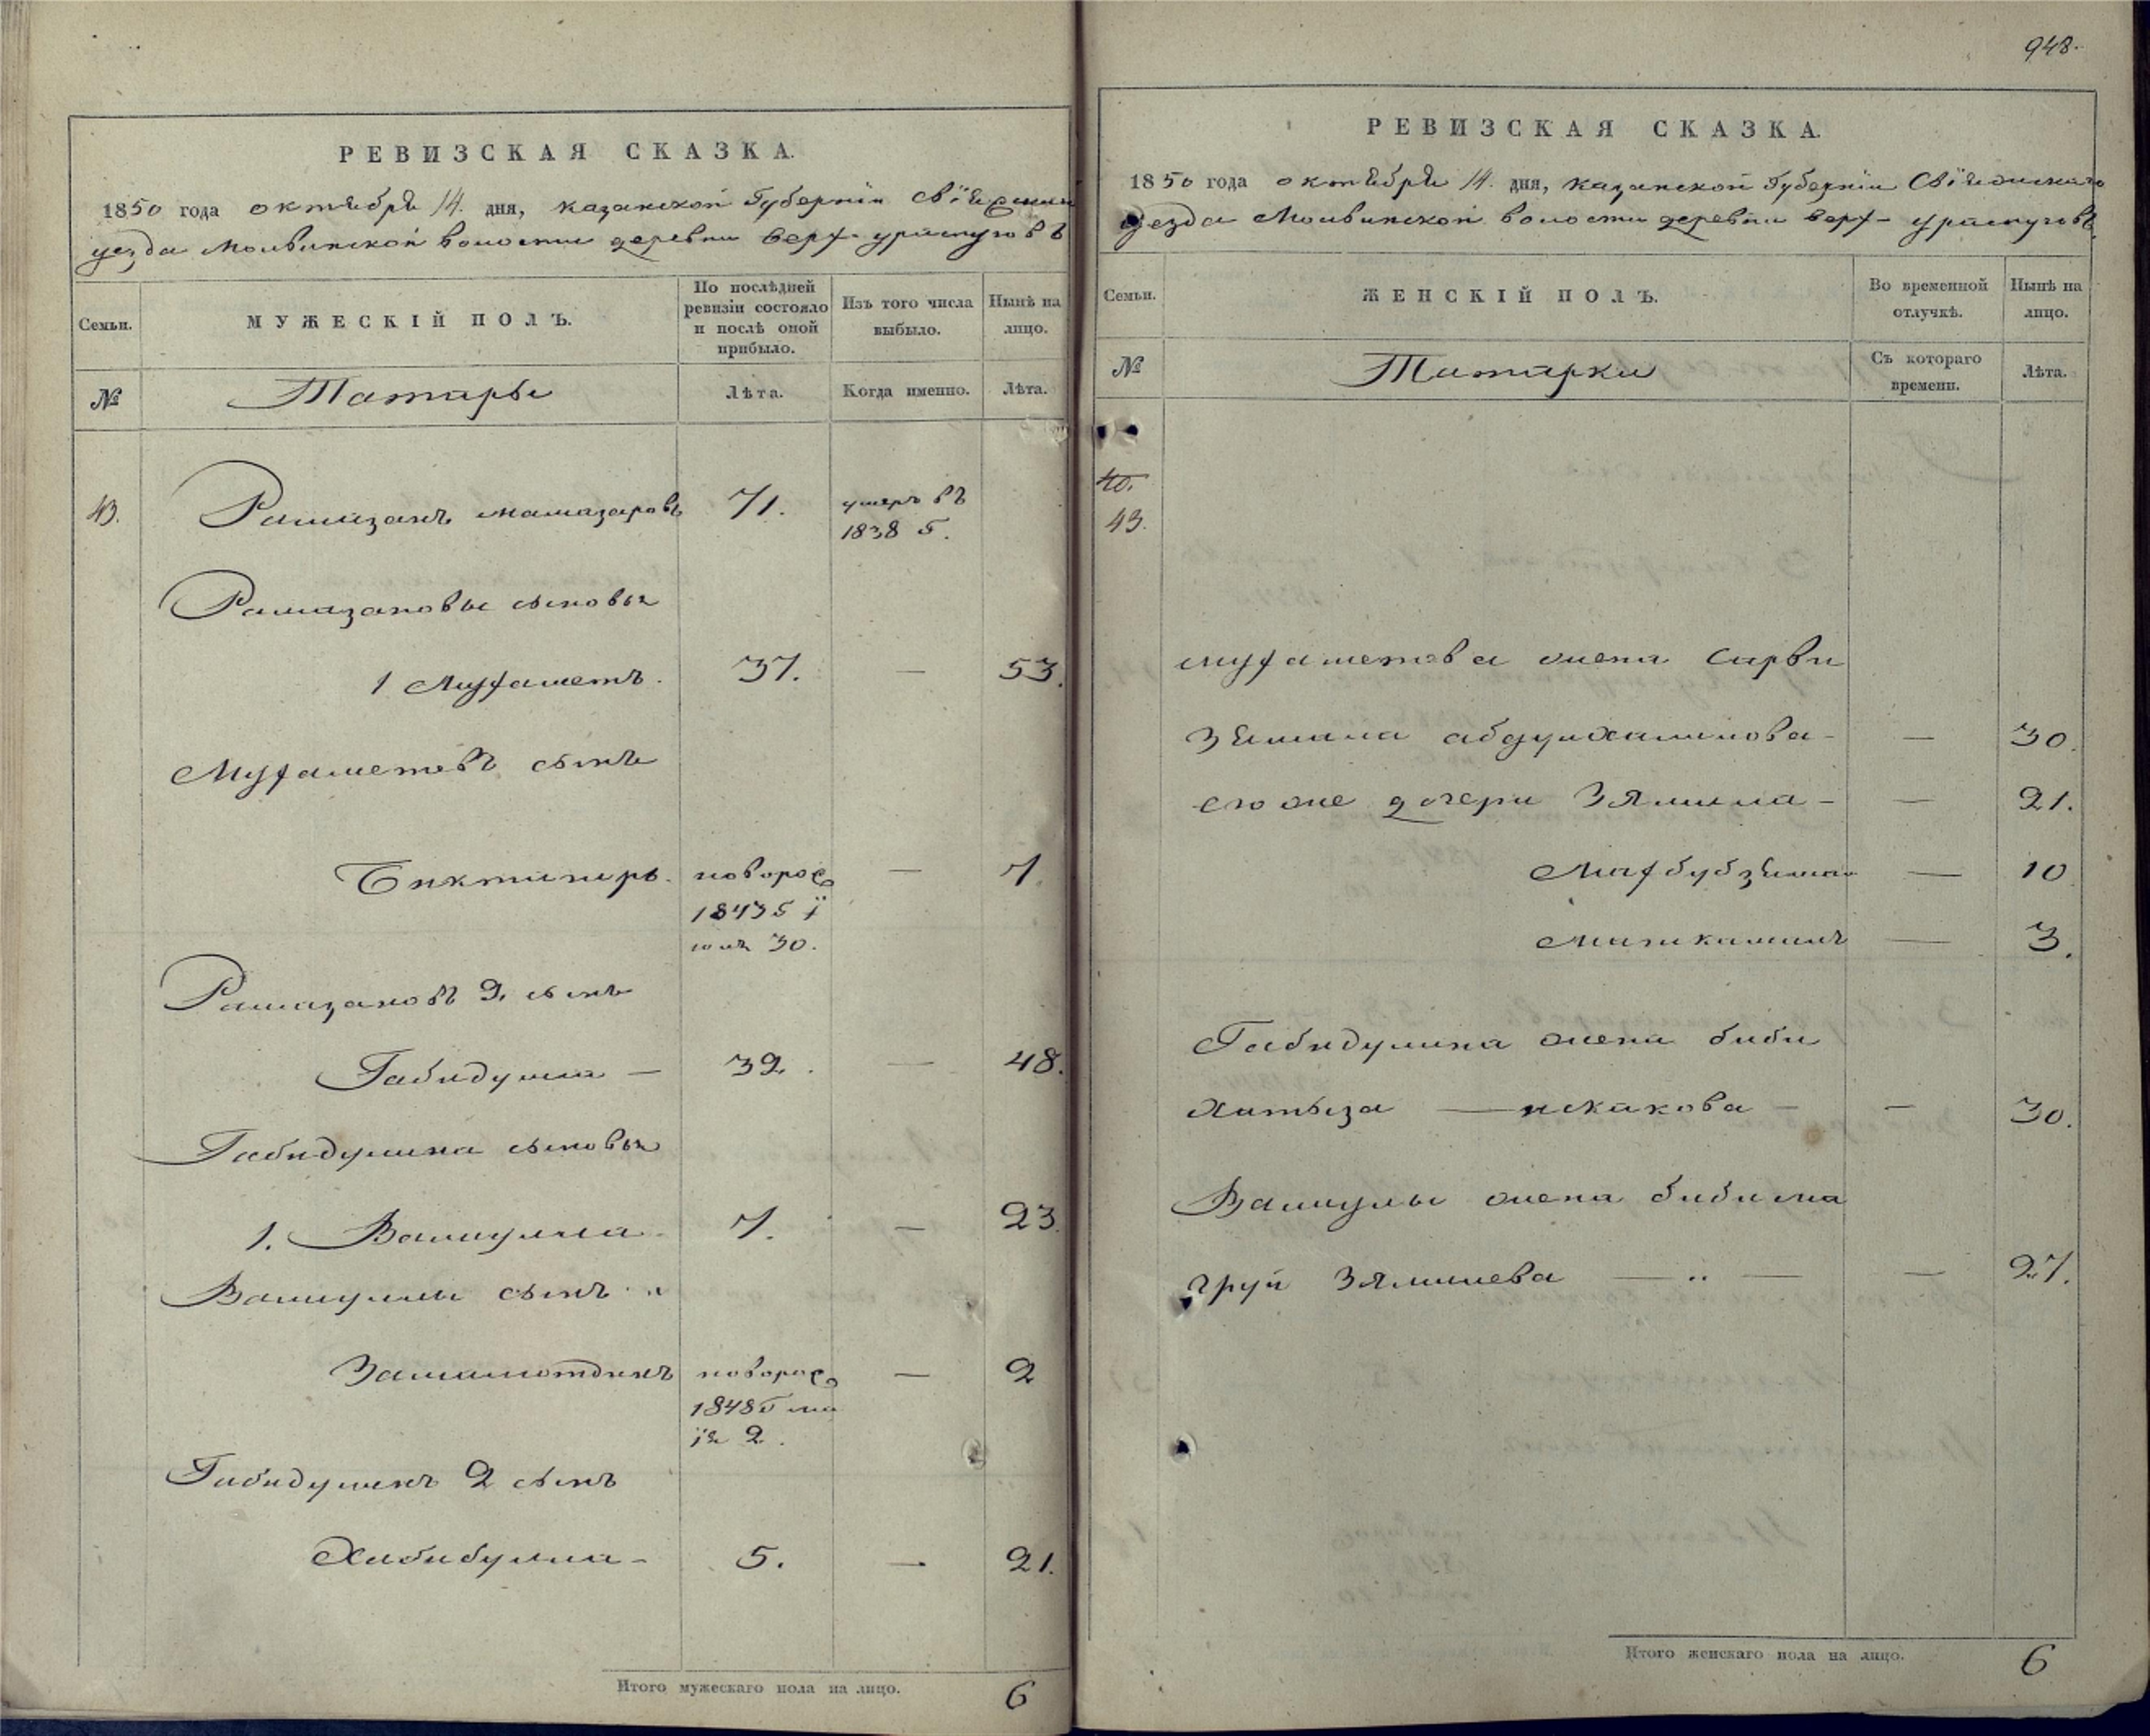 948.
РЕВИЗСКАЯ СКАЗКА.
1850 года октября 14. дня, казанской Губернiи Свiяжскаго
уезда Молвинской волости деревни верх- ураспуговъ
Семьи.
МУЖЕСКIЙ ПОЛЪ.
По послѣдней ревизiи состояло и послѣ оной прибыло.
Изъ того числа выбыло.
Нынѣ на лицо.
№
Татары
Лѣта.
Когда именно.
Лѣта.
43.
Рамазанъ 71. умеръ въ
1838 г.
Рамазановы сыновья
1 Мухаметъ. 37. — 53.
Мухаметевъ сынъ
Биктимиръ. новорос — 7.
1843 г i
юля 30.
Рамазановъ 2. сынъ
Габидулла — 32. — 48.
Габидуллина сыновья
1. Валиулла 7. — 23.
Валиуллы сынъ
Замалютдинъ новорос — 2
1848 г ма
iя 2.
Габидулинъ 2 сынъ
Хабибулла — 5. — 21.
Итого мужескаго пола на лицо. 6
РЕВИЗСКАЯ СКАЗКА.
1850 года октября 14. дня, казанской Губернiи Свiяжскаго
уезда Молвинской волости деревни верх- ураспуговъ
Семьи.
ЖЕНСКIЙ ПОЛЪ.
Во временной отлучкѣ.
Нынѣ на лицо.
№
Татарки
Съ котораго времени.
Лѣта.
40.
43.
мухаметова жена Сарви
зямала — — 30.
его же дочери Зямила — — 21.
Махбубзямал — 10
— 3.
Габидулина жена биби
Хатыза — искакова — — 30.
Валиулы жена бибима
груй Зямилева — — — 27.
Итого женскаго пола на лицо. 6